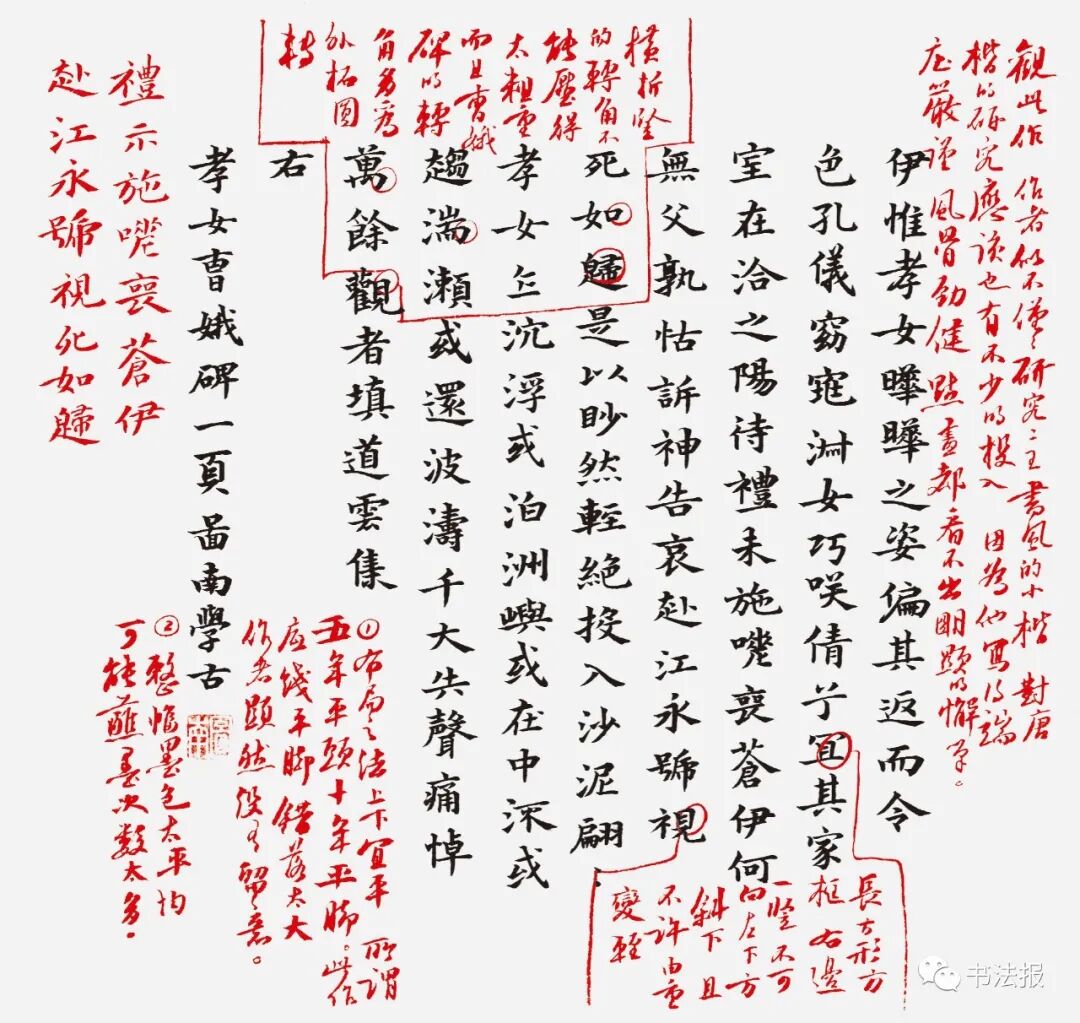 伊惟孝女曄曄之姿偏其返而令
色孔儀窈窕淑女巧咲倩兮宜其家
室在洽之陽待禮未施嗟喪蒼伊何
無父孰怙訴神告哀赴江永號視
死如歸是以眇然輕絕投入沙泥翩、
孝女乍沉浮或泊洲嶼或在中流或
趨湍瀨或還波濤千夫失聲痛悼
萬餘觀者填道雲集
右
孝女曹娥碑一頁啚南學古
觀此作 作者似不僅僅研究二王書風的小楷 對唐
楷的研究應該也有不少的投入 因為他寫得端
庄嚴謹 風骨勁健 點畫都看不出明顯的懈筆。
橫折豎
的轉角不
能壓得
太粗重
而且曹娥
碑的轉
角多為
外拓圓
轉
禮示施嗟喪蒼伊
赴江永號視死如歸
長方形方
框右邊
一豎不可
向左下方
斜下且
不許由重
變輕
①布局之法上下宜平 所謂
五年平頭十年平脚。此作
底线平脚錯落太大
作者顯然没有留意。
②整幅墨色太平均
可能蘸墨次数太多。
书法报